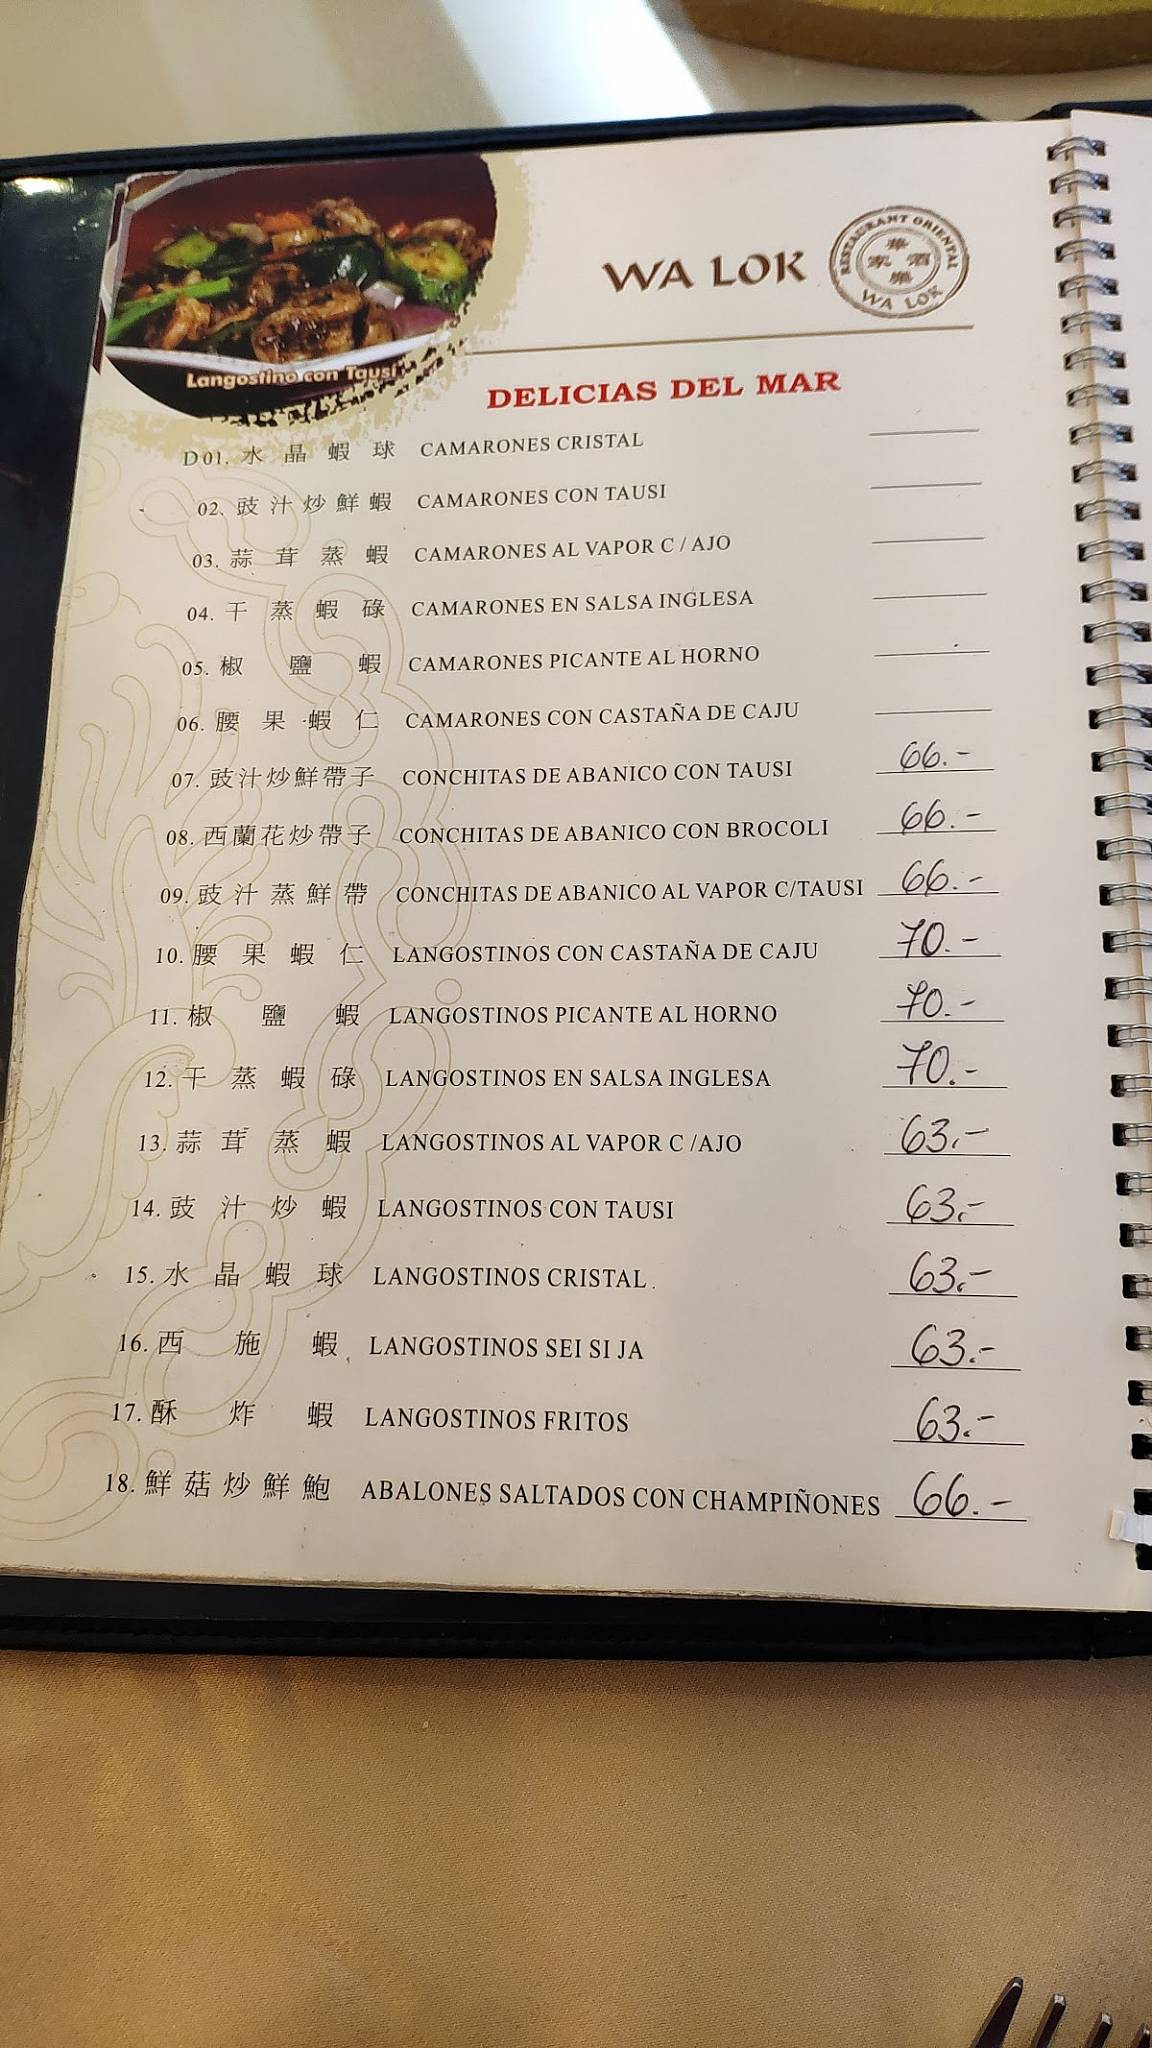 WA LOK
RESTAURANT ORIENTAL
華家酒樂
WA LOK
Langostino con Tausi
DELICIAS DEL MAR
D01. 水晶蝦球 CAMARONES CRISTAL
02. 豉汁炒鮮蝦 CAMARONES CON TAUSI
03. 蒜茸蒸蝦 CAMARONES AL VAPOR C / AJO
04. 干蒸蝦碌 CAMARONES EN SALSA INGLESA
05. 椒鹽蝦 CAMARONES PICANTE AL HORNO
06. 腰果蝦仁 CAMARONES CON CASTAÑA DE CAJU
07. 豉汁炒鮮帶子 CONCHITAS DE ABANICO CON TAUSI 66.-
08. 西蘭花炒帶子 CONCHITAS DE ABANICO CON BROCOLI 66.-
09. 豉汁蒸鮮帶 CONCHITAS DE ABANICO AL VAPOR C/TAUSI 66.-
10. 腰果蝦仁 LANGOSTINOS CON CASTAÑA DE CAJU 70.-
11. 椒鹽蝦 LANGOSTINOS PICANTE AL HORNO 70.-
12. 干蒸蝦碌 LANGOSTINOS EN SALSA INGLESA 70.-
13. 蒜茸蒸蝦 LANGOSTINOS AL VAPOR C /AJO 63.-
14. 豉汁炒蝦 LANGOSTINOS CON TAUSI 63.-
15. 水晶蝦球 LANGOSTINOS CRISTAL 63.-
16. 西施蝦 LANGOSTINOS SEI SI JA 63.-
17. 酥炸蝦 LANGOSTINOS FRITOS 63.-
18. 鮮菇炒鮮鮑 ABALONES SALTADOS CON CHAMPIÑONES 66.-